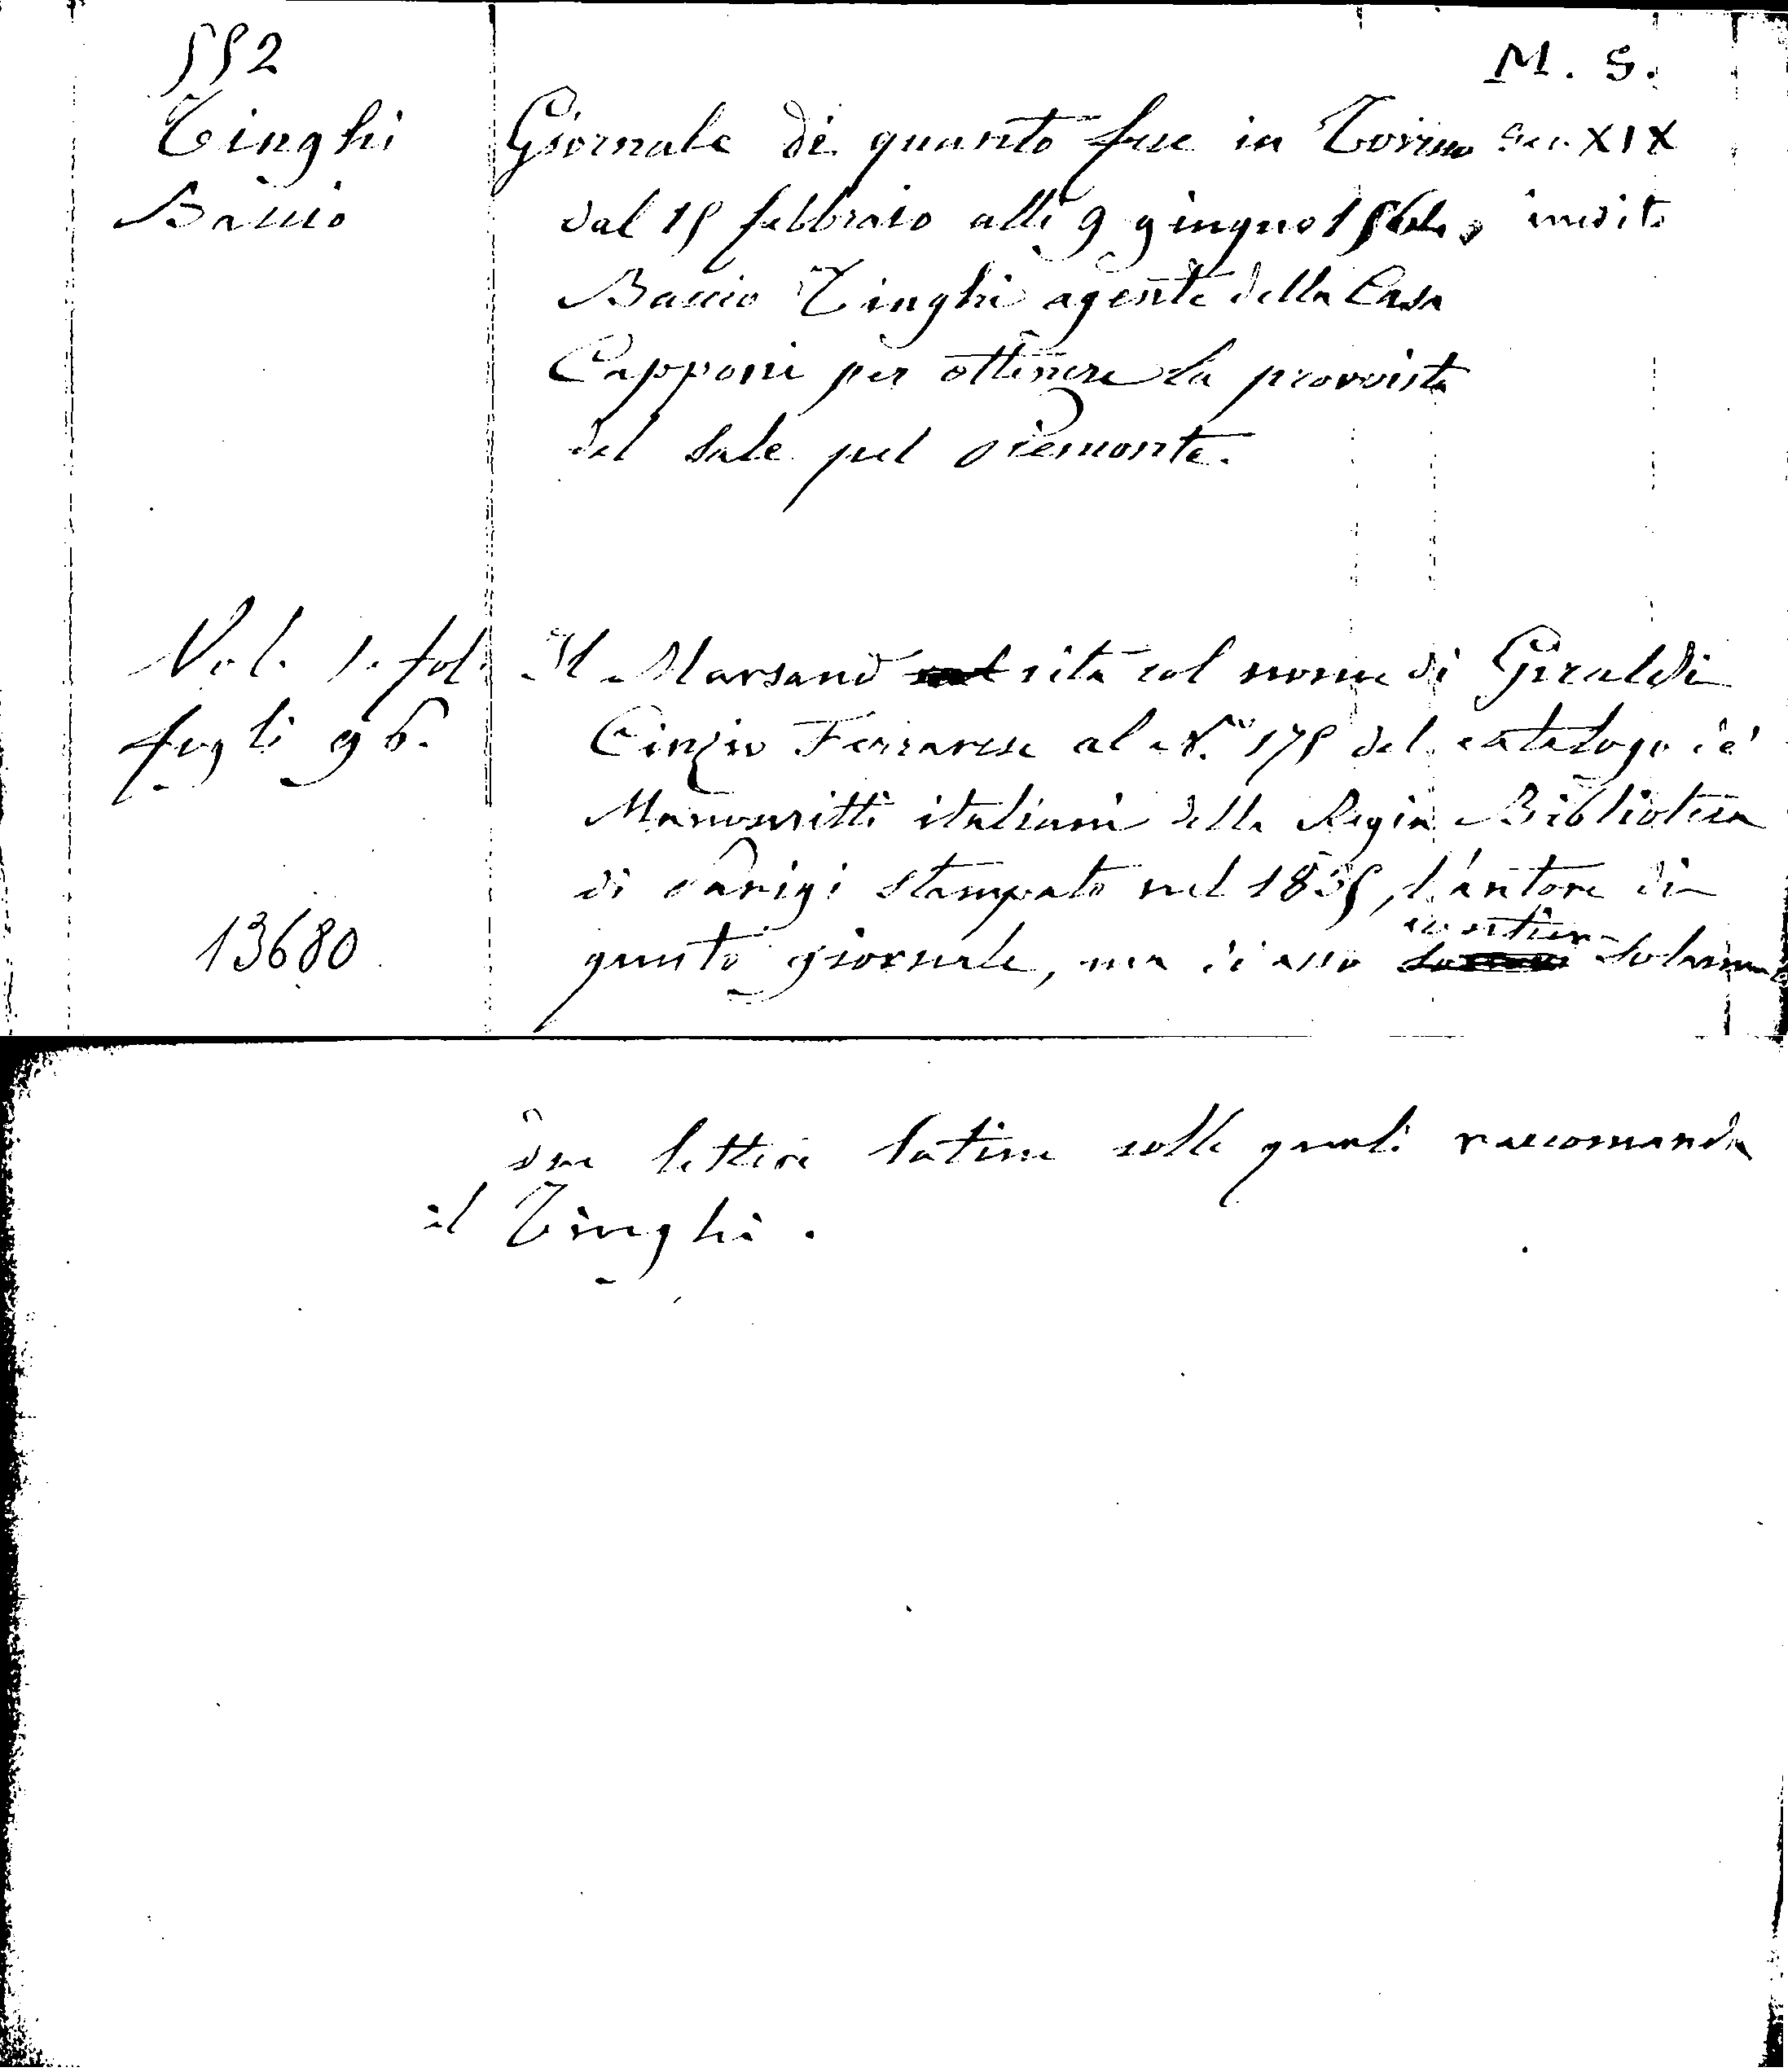 552
M. S.
Tinghi
Baccio
Giornale di quanto fece in Torino
dal 15 febbraio alli 9 giugno
Baccio Tinghi agente della Casa
Capponi per ottenere la provvista
del sale pel Piemonte.
Sec. XIX
inedito
Vol. 1. fol.
fogli 96.
13680
Il Marsand cita col nome di Giraldi
Cinzio Ferrarese al N.° 175 del catalogo de'
Manoscritti italiani della Regia Biblioteca
di Parigi stampato nel 1835, l'autore di
questo giornale, ma di esso contiene
due lettere latine colle quali raccomanda
il Tinghi.